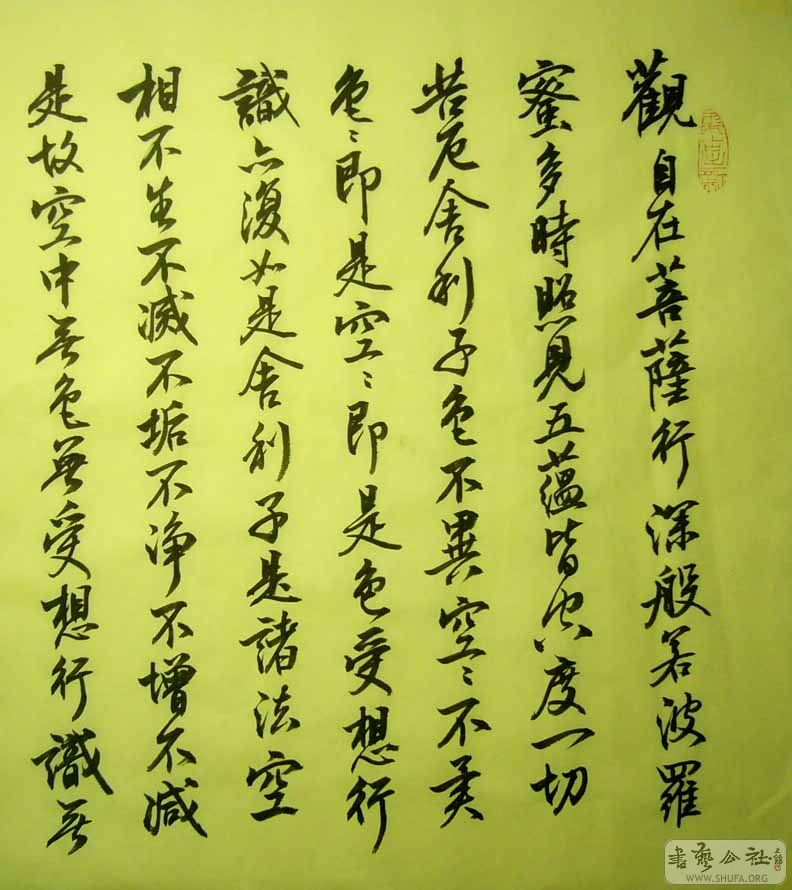 觀自在菩薩行深般若波羅
蜜多時照見五蘊皆空度一切
苦厄舍利子色不異空〻不異
色〻即是空〻即是色受想行
識亦復如是舍利子是諸法空
相不生不滅不垢不淨不增不減
是故空中無色無受想行識無
書藝公社
WWW.SHUFA.ORG